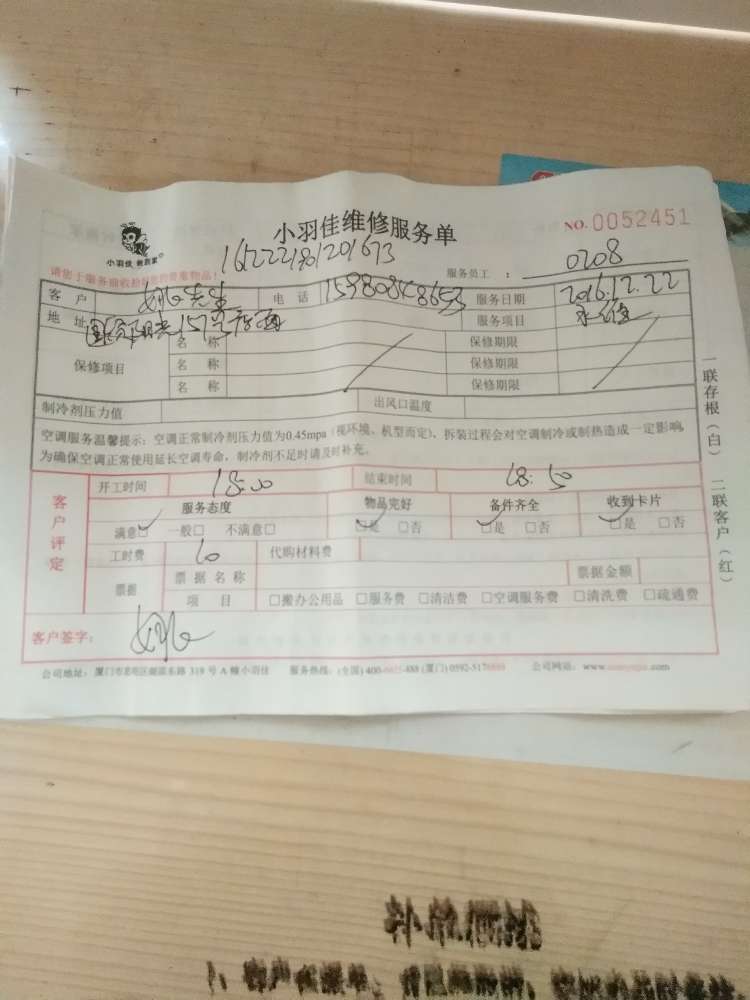 小羽佳维修服务单
NO.0052451
小羽佳 家政家
162221801201673
请您于服务前收拾好您的贵重物品！
服务员工： 0208
客户 先生 电话 服务日期 2016.12.22
地址 服务项目
保修项目 名称 保修期限
名称 保修期限
名称 保修期限
制冷剂压力值 出风口温度
空调服务温馨提示：空调正常制冷剂压力值为0.45mpa（视环境、机型而定）、拆装过程会对空调制冷或制热造成一定影响,
为确保空调正常使用延长空调寿命，制冷剂不足时请及时补充。
客户评定
开工时间 18:00 结束时间 18:50
服务态度 物品完好 备件齐全 收到卡片
满意□ 一般□ 不满意□ □是 □否 □是 □否 □是 □否
工时费 60 代购材料费
票据 票据名称 票据金额
项目 □搬办公用品 □服务费 □清洁费 □空调服务费 □清洗费 □疏通费
客户签字：
公司地址：厦门市 319号A幢小羽佳 服务热线：(全国)400- -888 (厦门)0592-517 公司网站：www. .com
一联存根（白） 二联客户（红）